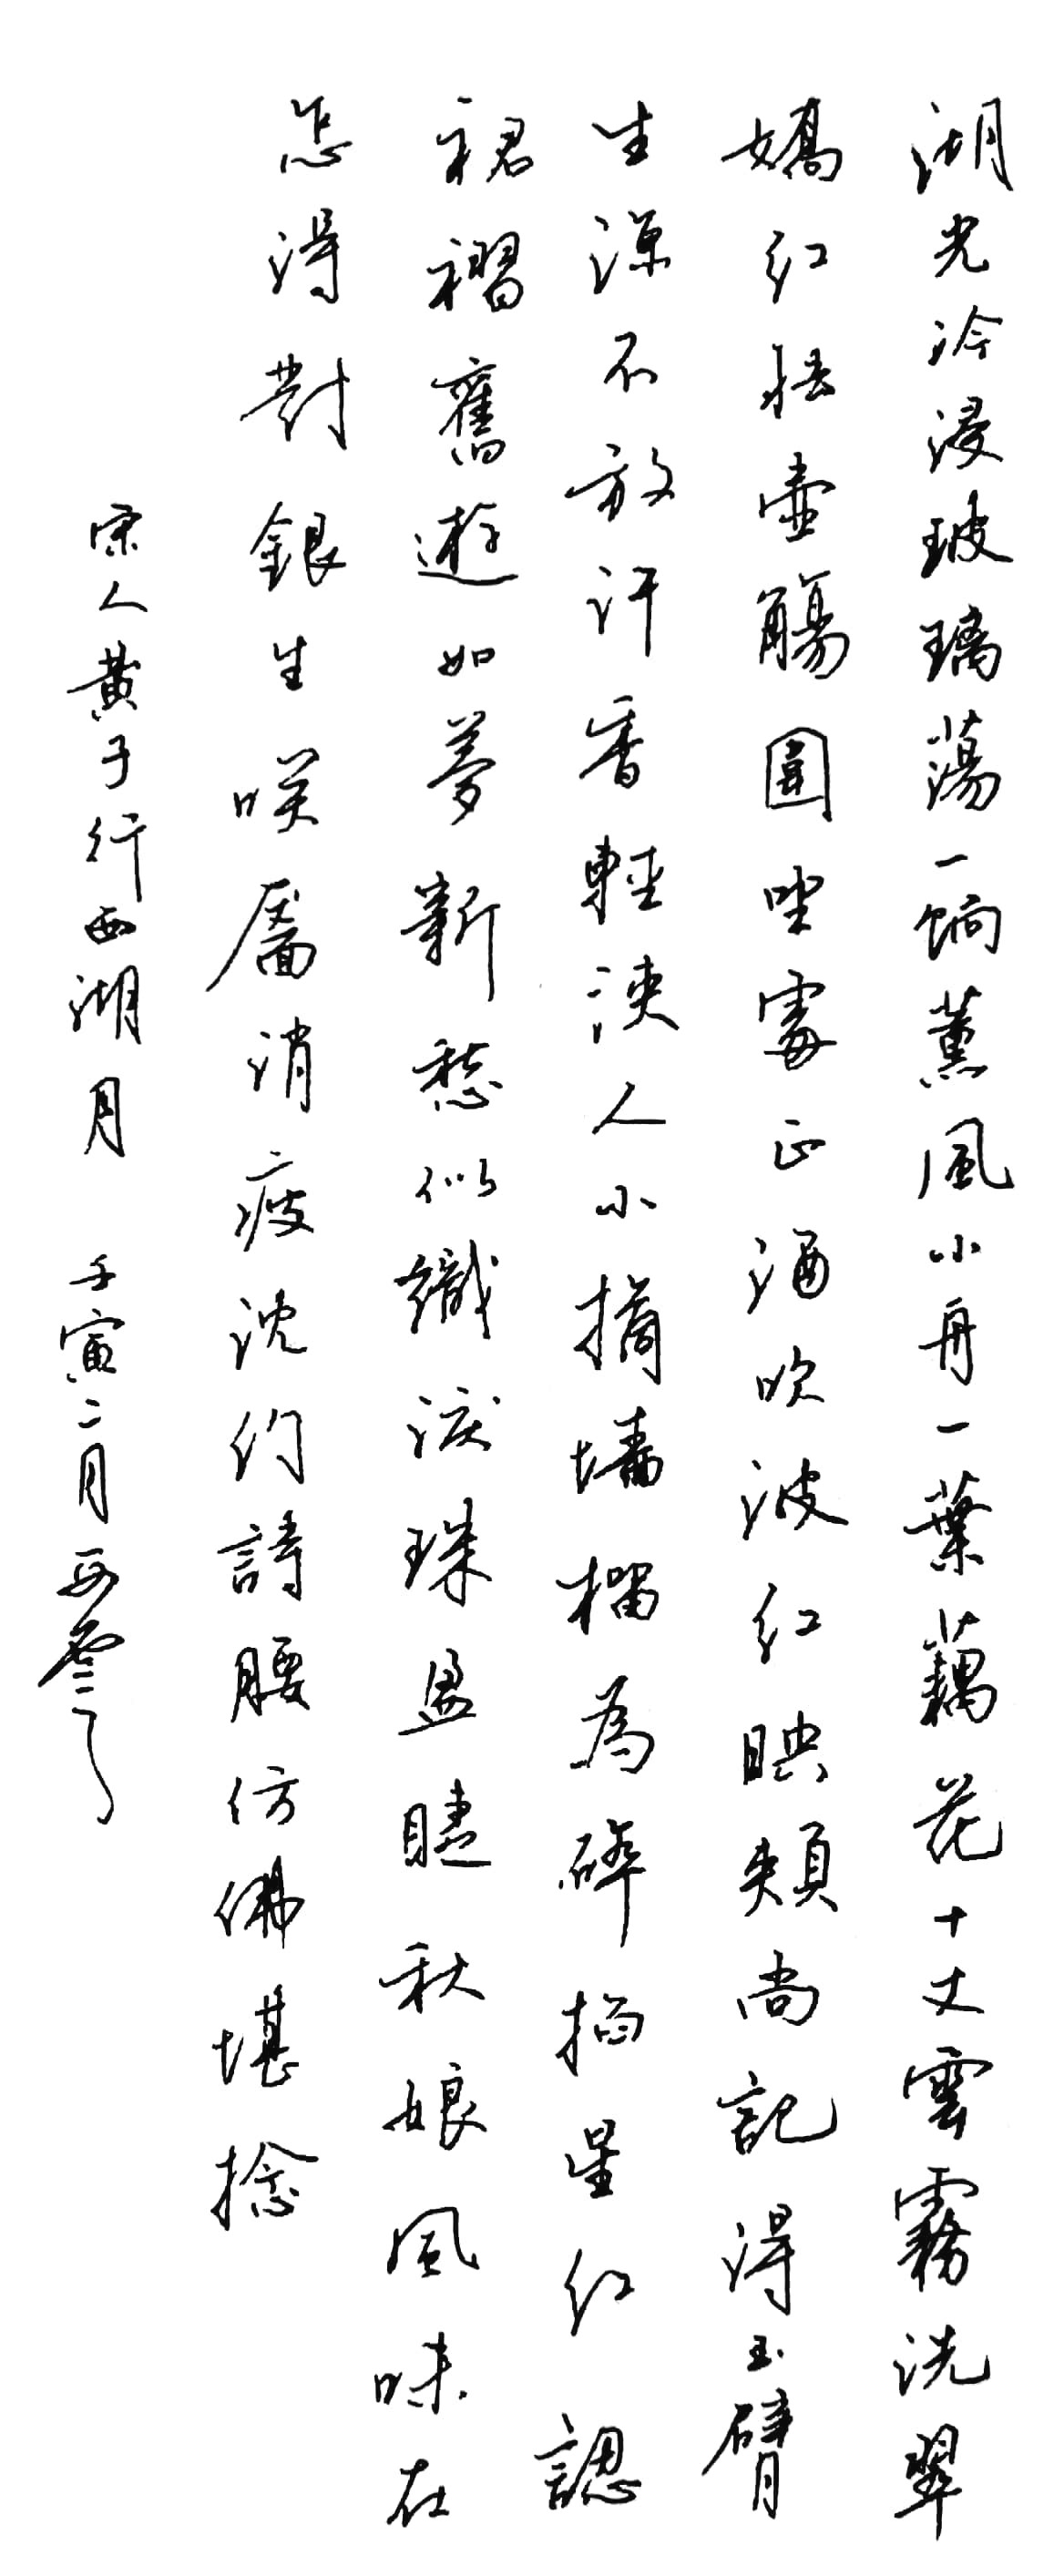 湖光冷浸玻璃蕩一餉薰風小舟一葉藕花十丈雲霧洗翠
嬌紅怯壺觴圍坐處正酒吹波紅映頰尚記得玉臂
生涼不放汗香輕浹人小摘墻榴為碎掐星紅認
裙褶舊遊如夢新愁似織淚珠盈睫秋娘風味在
怎得對銀生咲靨消瘦沈約詩腰仿佛堪捻
宋人黃子行西湖月 壬寅二月